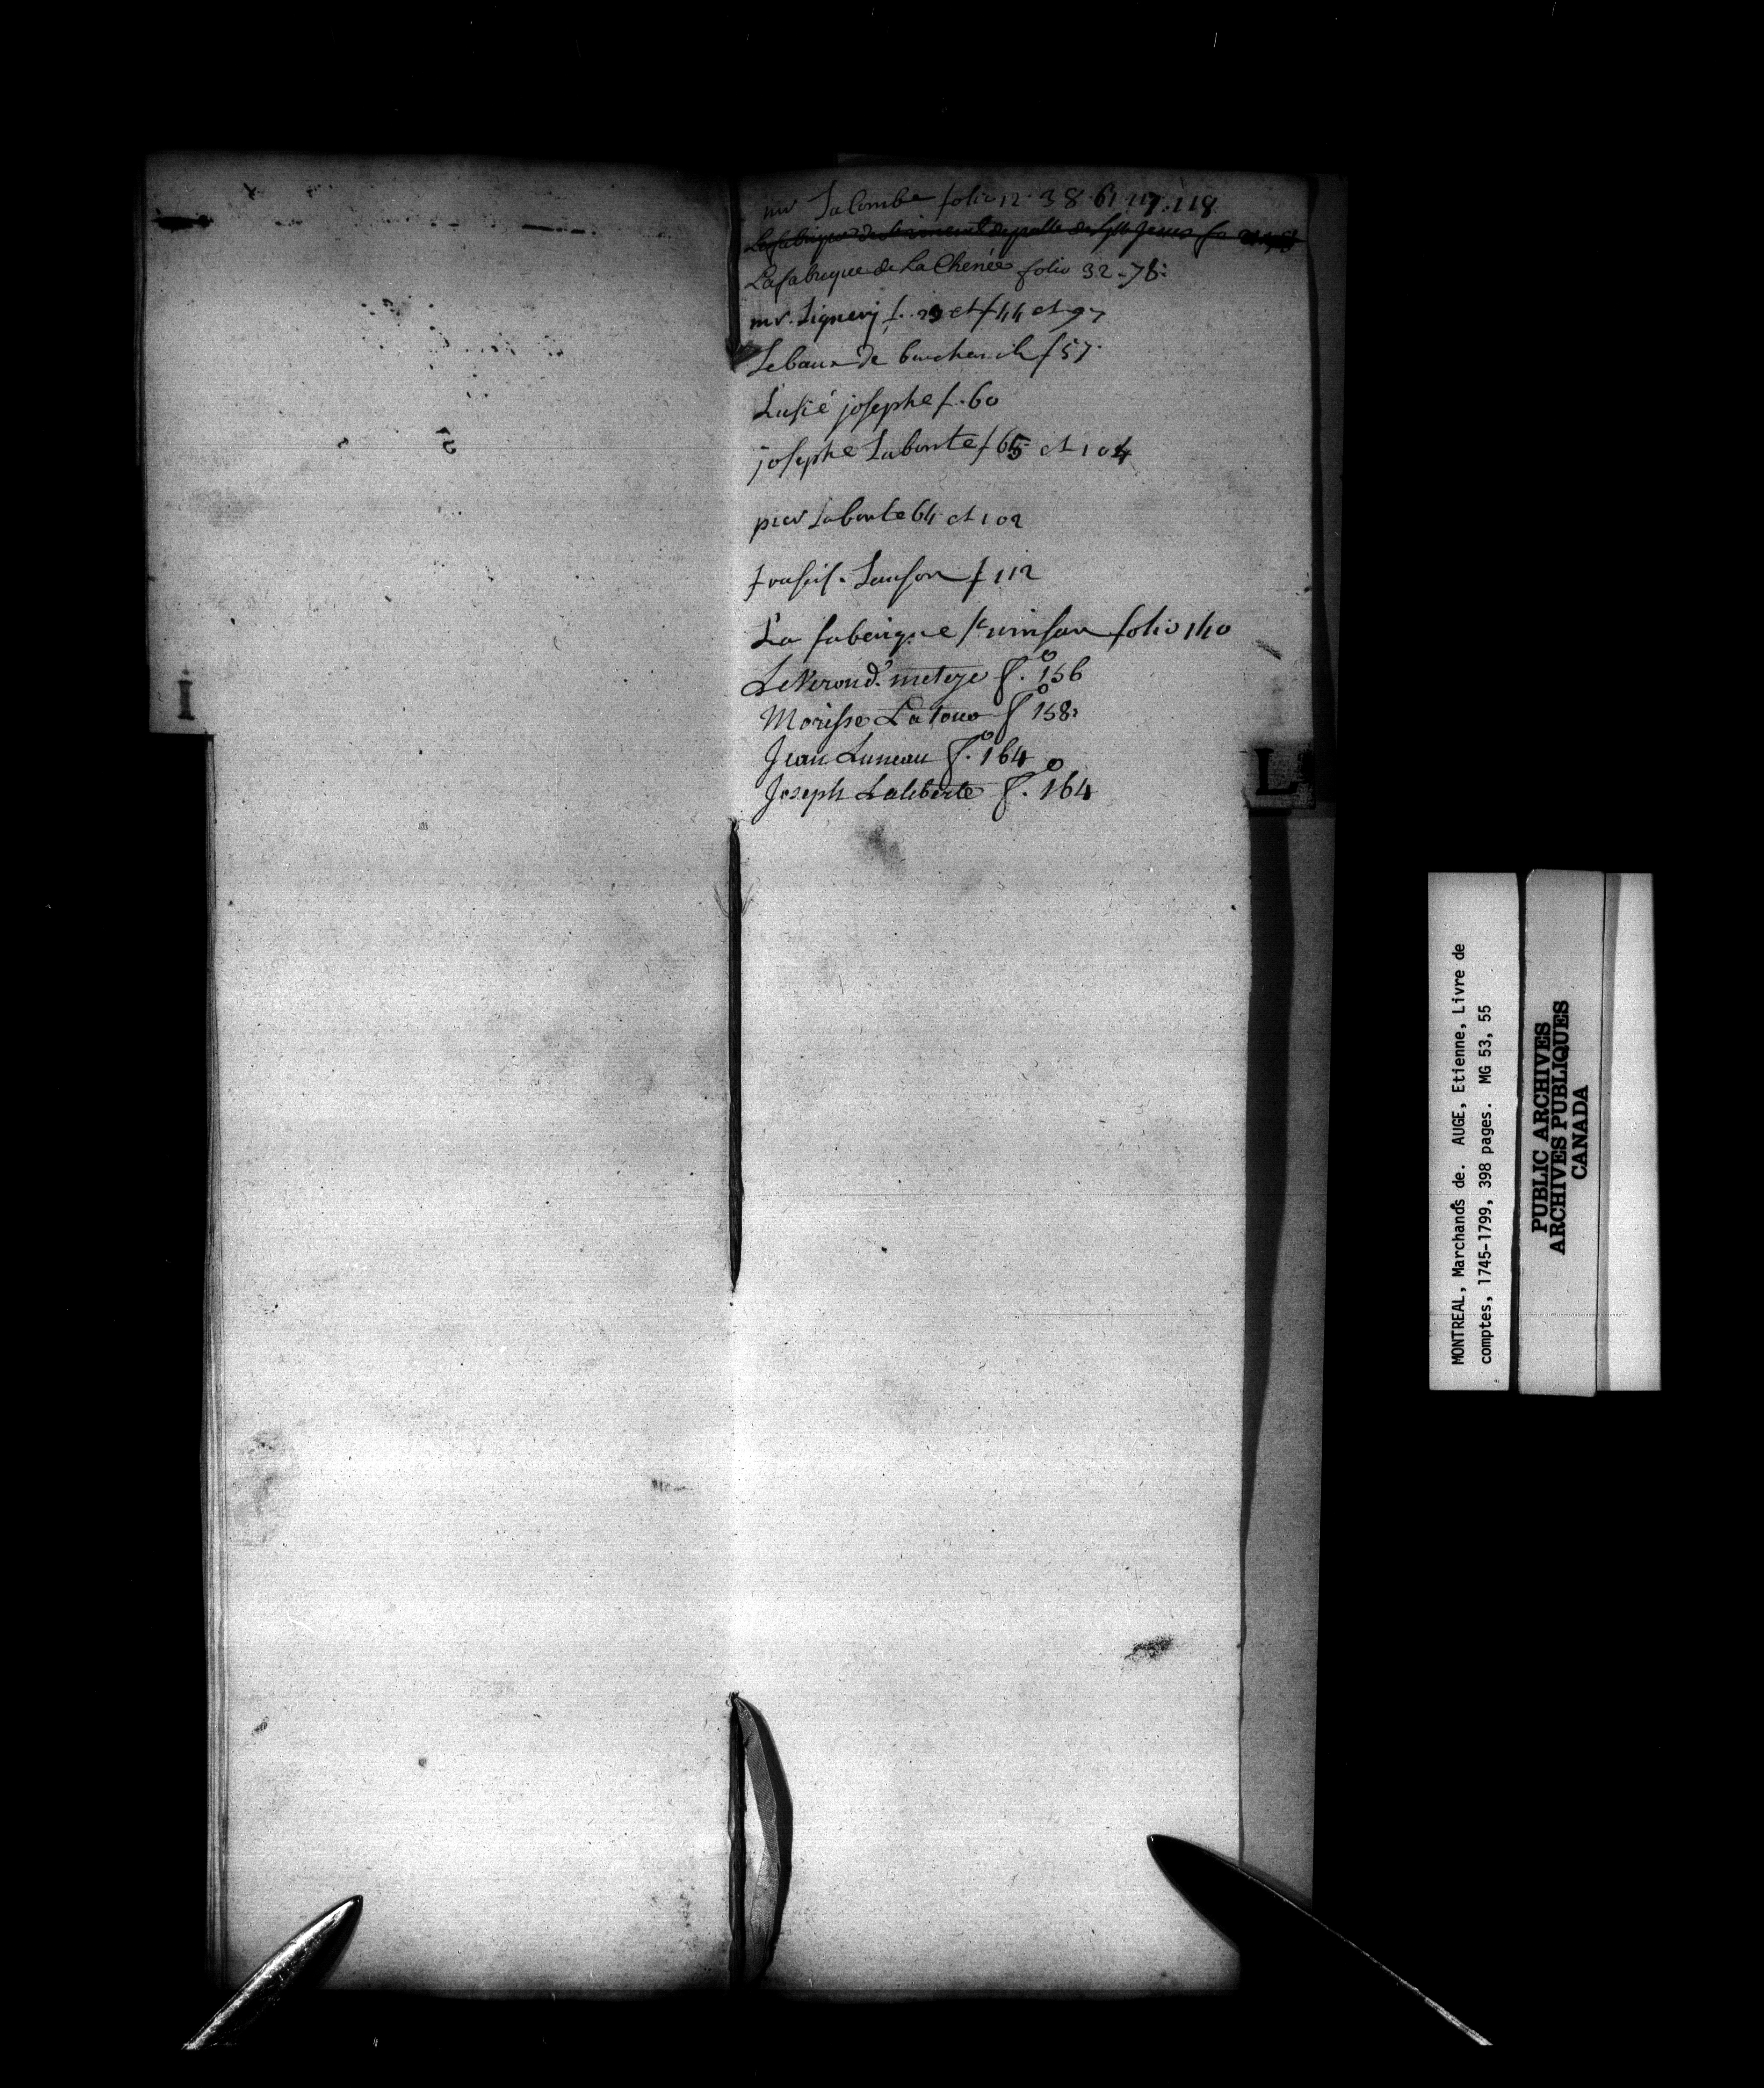 I
mr Lalombe folio 12. 38. 61. 117. 118
La fabrique de de paulle de Jesus fo
La fabrique de La Chenée folio 32-78:
mr. Lignery f. 29 et f 44 et 97
Lebaux de f 57.
Lusié josephe f. 60
josephe Labonte f 65 et 104
pier Labonte 64 et 102
Lauson f 112
La faberique st vinsan folio 140
Le Nerond. f.º 156
Morisse Latour fº 158:
Jean Luneau f.º 164
Joseph Laliberte f.º 164
L
MONTREAL, Marchands de. AUGE, Etienne, Livre de
comptes, 1745-1799, 398 pages. MG 53, 55
PUBLIC ARCHIVES
ARCHIVES PUBLIQUES
CANADA